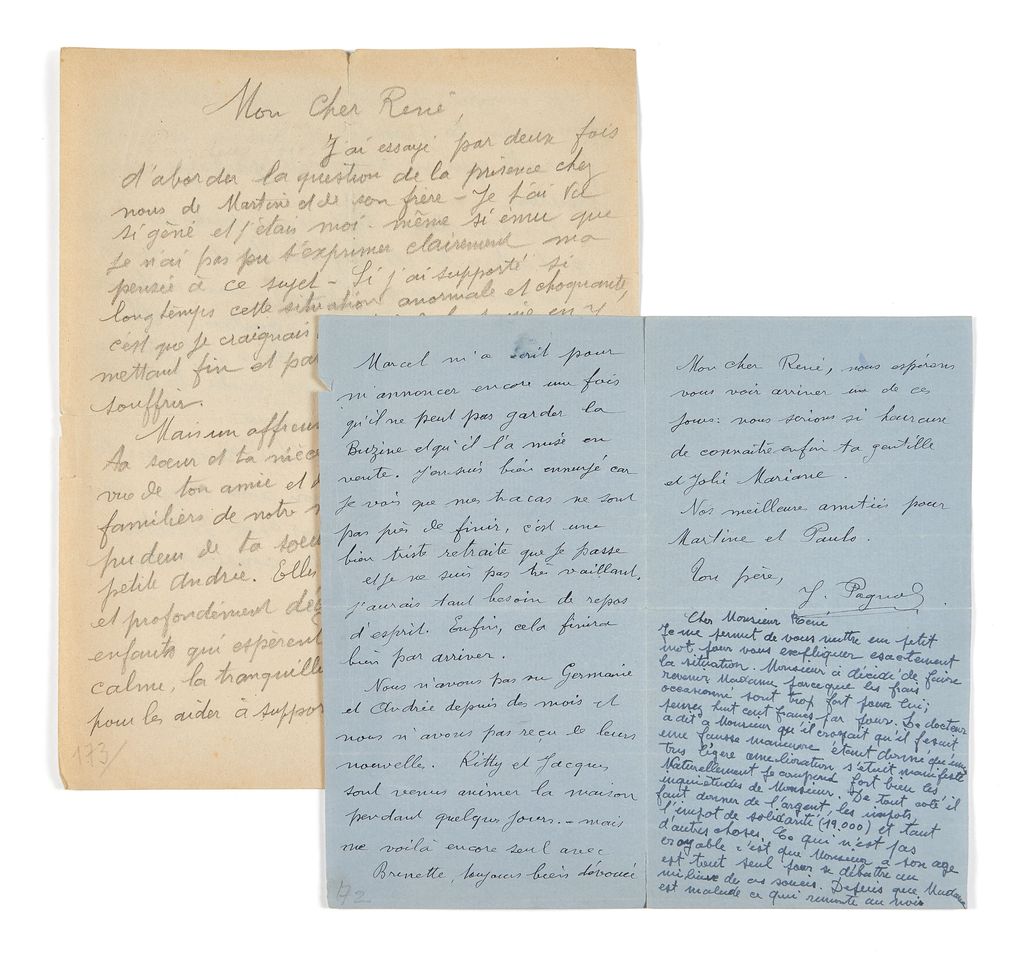 Mon Cher René,
J'ai essayé par deux fois
d'aborder la question de la présence chez
nous de Martine et de son frère - Je t'ai vu
si gêné et j'étais moi-même si ému que
je n'ai pas pu t'exprimer clairement ma
pensée à ce sujet - Si j'ai supporté si
longtemps cette situation anormale et choquante,
c'est que je craignais
en y
mettant fin et par
souffrir.
Mais un affreux
ta soeur et ta nièce
vue de ton amie et
familiers de notre
pudeur de ta soeur
petite Andrée. Elles
et profondément
enfants qui espèrent
calme, la tranquille
pour les aider à suppor
173/
Marcel m'a écrit pour
m'annoncer encore une fois
qu'il ne peut pas garder la
Buzine et qu'il l'a mise en
vente. J'en suis bien ennuyé car
je vois que mes tracas ne sont
pas près de finir, c'est une
bien triste retraite que je passe
et je ne suis pas très vaillant,
j'aurais tant besoin de repos
d'esprit. Enfin, cela finira
bien par arriver.
Nous n'avons pas vu Germaine
et Andrée depuis des mois et
nous n'avons pas reçu de leurs
nouvelles. Kitty et Jacques
sont venus animer la maison
pendant quelques jours. - mais
me voilà encore seul avec
Brunette, toujours bien dévouée
172
Mon cher René, nous espérons
vous voir arriver un de ces
jours: nous serions si heureux
de connaître enfin ta gentille
et jolie Mariane.
Nos meilleures amitiés pour
Martine et Paulo.
Ton père,
J. Pagnol
Cher Monsieur René
Je me permet de vous mettre un petit
mot pour vous expliquer exactement
la situation. Monsieur a décidé de faire
revenir Madame parceque les frais
occasionné sont trop fort pour lui;
pensez huit cent francs par jour. Le docteur
a dit a Monsieur qu'il croyait qu'il fesait
une fausse manoeuvre étant donné qu'une
très légère amélioration s'était manifesté
Naturellement je comprend fort bien les
inquiétudes de Monsieur. De tout coté il
faut donner de l'argent, les impots,
l'impot de solidarité (19.000) et tant
d'autres choses. Ce qui n'est pas
croyable c'est que Monsieur a son age
est tout seul pour se débattre au
milieu de ces soucis. Depuis que Madame
est malade ce qui remonte au mois